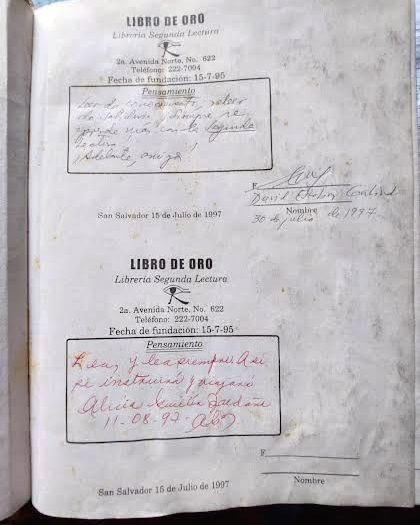 LIBRO DE ORO
Librería Segunda Lectura
2a. Avenida Norte, No. 622
Teléfono: 222-7004
Fecha de fundación: 15-7-95
Pensamiento
Leer da conocimiento, releer
da sabiduría y siempre se
aprende más con la Segunda
Lectura
¡Adelante, amiga!
F
David
30 de julio de 1997
Nombre
San Salvador 15 de Julio de 1997
LIBRO DE ORO
Librería Segunda Lectura
2a. Avenida Norte, No. 622
Teléfono: 222-7004
Fecha de fundación: 15-7-95
Pensamiento
Lea, y lea siempre. Así
se instruirá y viajará
Alicia Saldaña
11-08-97
F
Nombre
San Salvador 15 de Julio de 1997